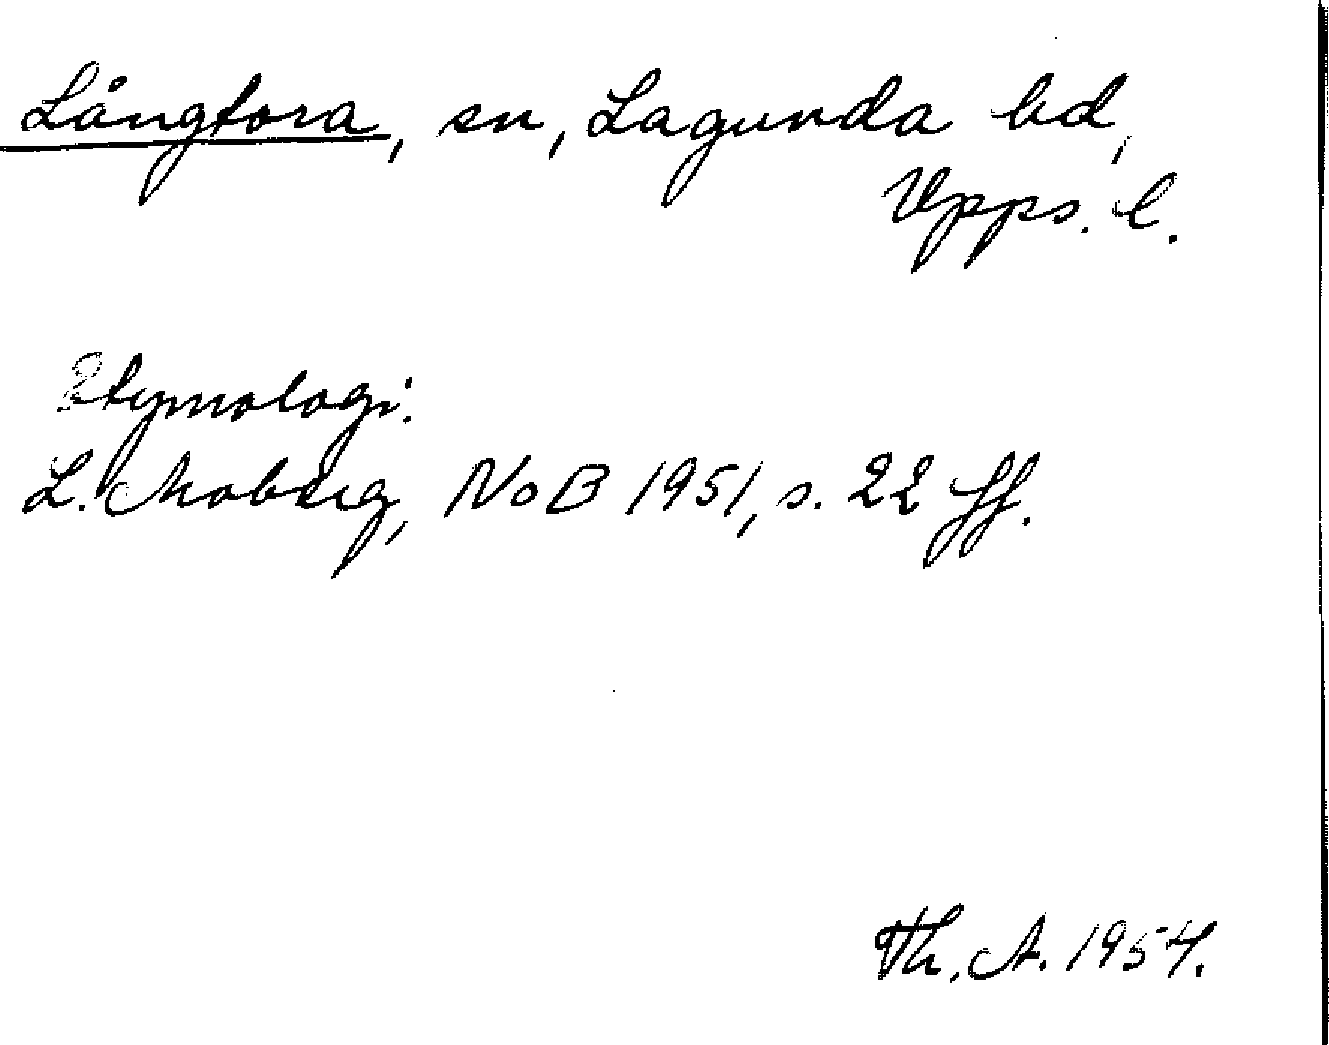 Långtora, sn, Lagunda hd,
Upps. l.
Etymologi:
L. Moberg, NoB 1951, s. 22 ff.
Th. A. 1954.